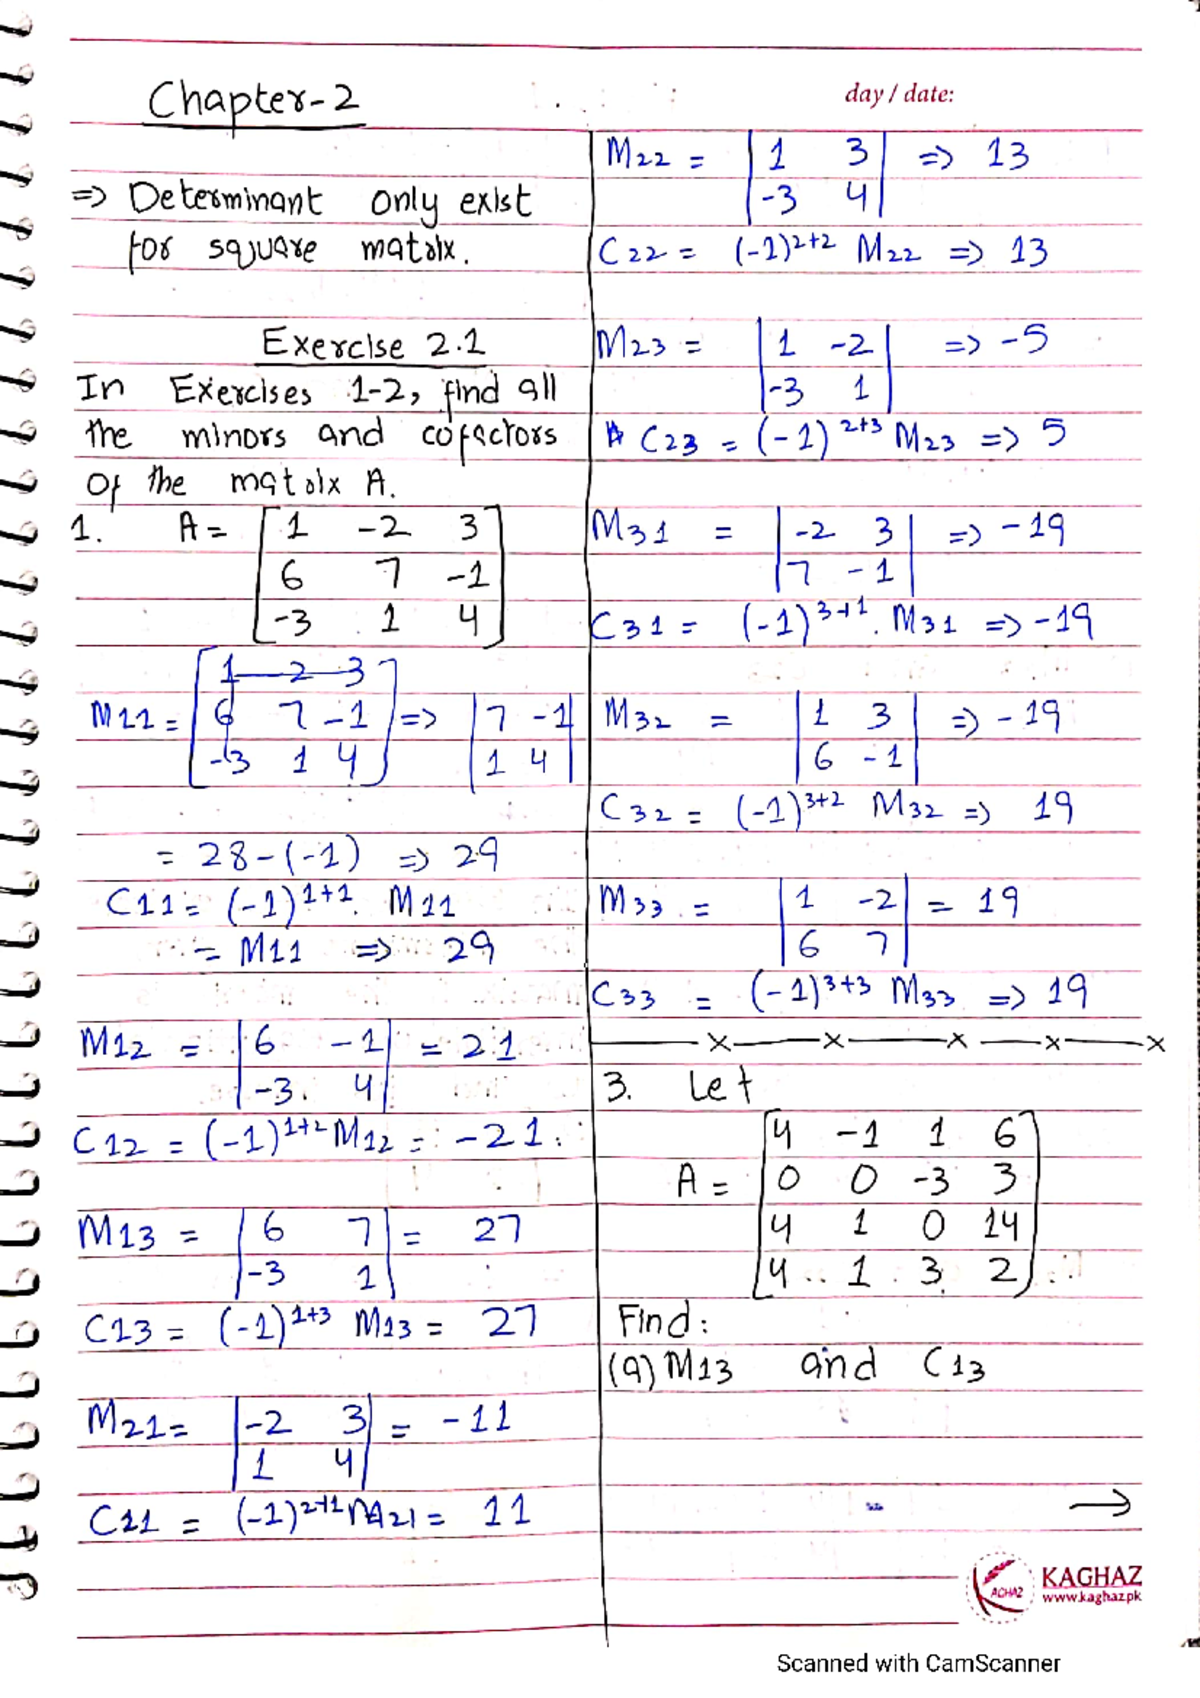 Chapter-2
=> Determinant only exist
for square matrix.
Exercise 2.1
In Exercises 1-2, find all
the minors and cofactors
of the matrix A.
1. A = [1 -2 3
6 7 -1
-3 1 4]
M11 = [1 -2 3
6 7 -1
-3 1 4] => |7 -1
1 4|
= 28-(-1) => 29
C11 = (-1)^1+1. M11
= M11 => 29
M12 = |6 -1
-3 4| = 21
C12 = (-1)^1+2 M12 = -21.
M13 = |6 7
-3 1| = 27
C13 = (-1)^1+3 M13 = 27
M21 = |-2 3
1 4| = -11
C11 = (-1)^2+1 M21 = 11
day / date:
M22 = |1 3
-3 4| => 13
C22 = (-1)^2+2 M22 => 13
M23 = |1 -2
-3 1| => -5
C23 = (-1)^2+3 M23 => 5
M31 = |-2 3
7 -1| => -19
C31 = (-1)^3+1. M31 => -19
M32 = |1 3
6 -1| => -19
C32 = (-1)^3+2 M32 => 19
M33 = |1 -2
6 7| = 19
C33 = (-1)^3+3 M33 => 19
x x x x x
3. Let
A = [4 -1 1 6
0 0 -3 3
4 1 0 14
4 1 3 2]
Find:
(a) M13 and C13
→
KAGHAZ
www.kaghaz.pk
Scanned with CamScanner